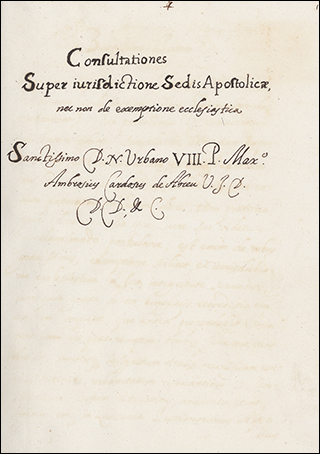 Consultationes
Super iurisdictione Sedis Apostolicæ,
nec non de exemptione ecclesiastica
Sanctissimo D. N. Urbano VIII. P. Maxº.
Ambrosius Cardosus de Abreu V. J. D.
D. D. & C.